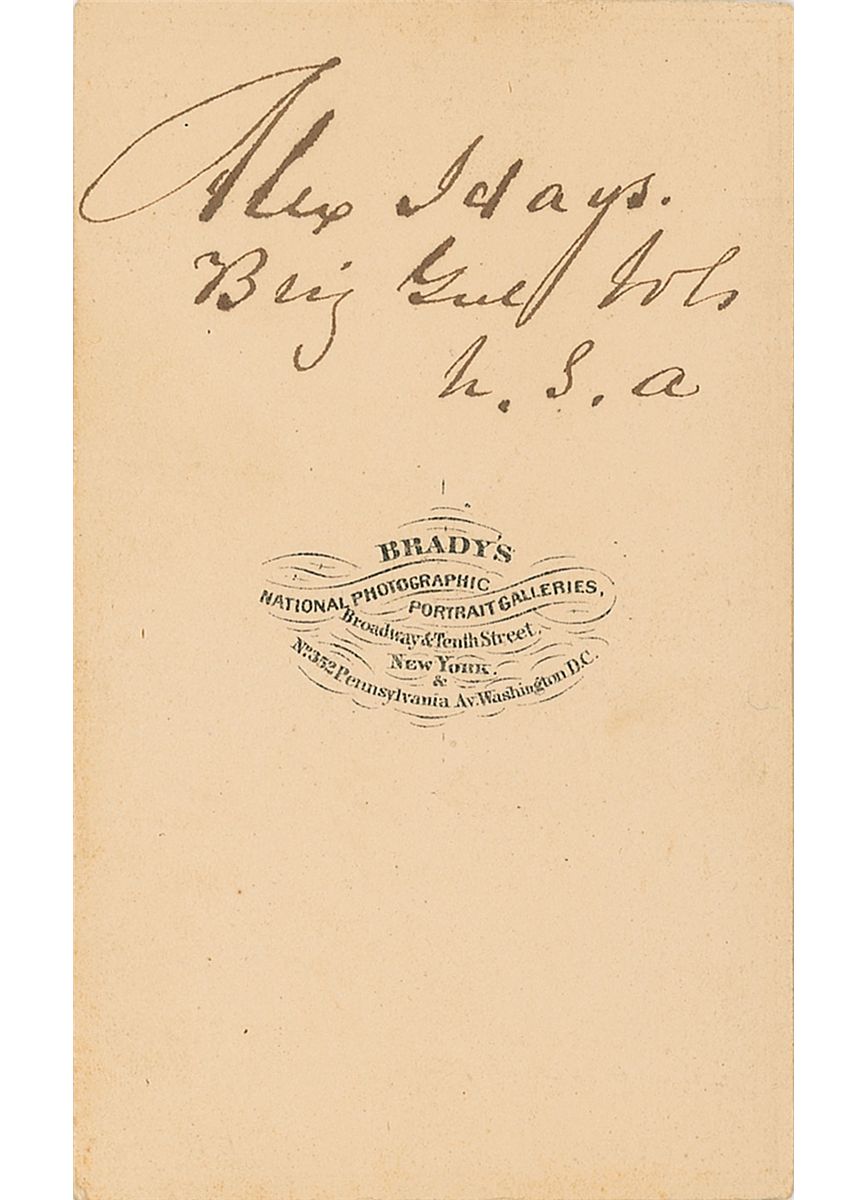 Alex Hays.
Brig Genl Vols
U. S. A
BRADY'S
NATIONAL PHOTOGRAPHIC
PORTRAIT GALLERIES,
Broadway & Tenth Street.
NEW YORK.
&
No. 352 Pennsylvania Av. Washington D.C.